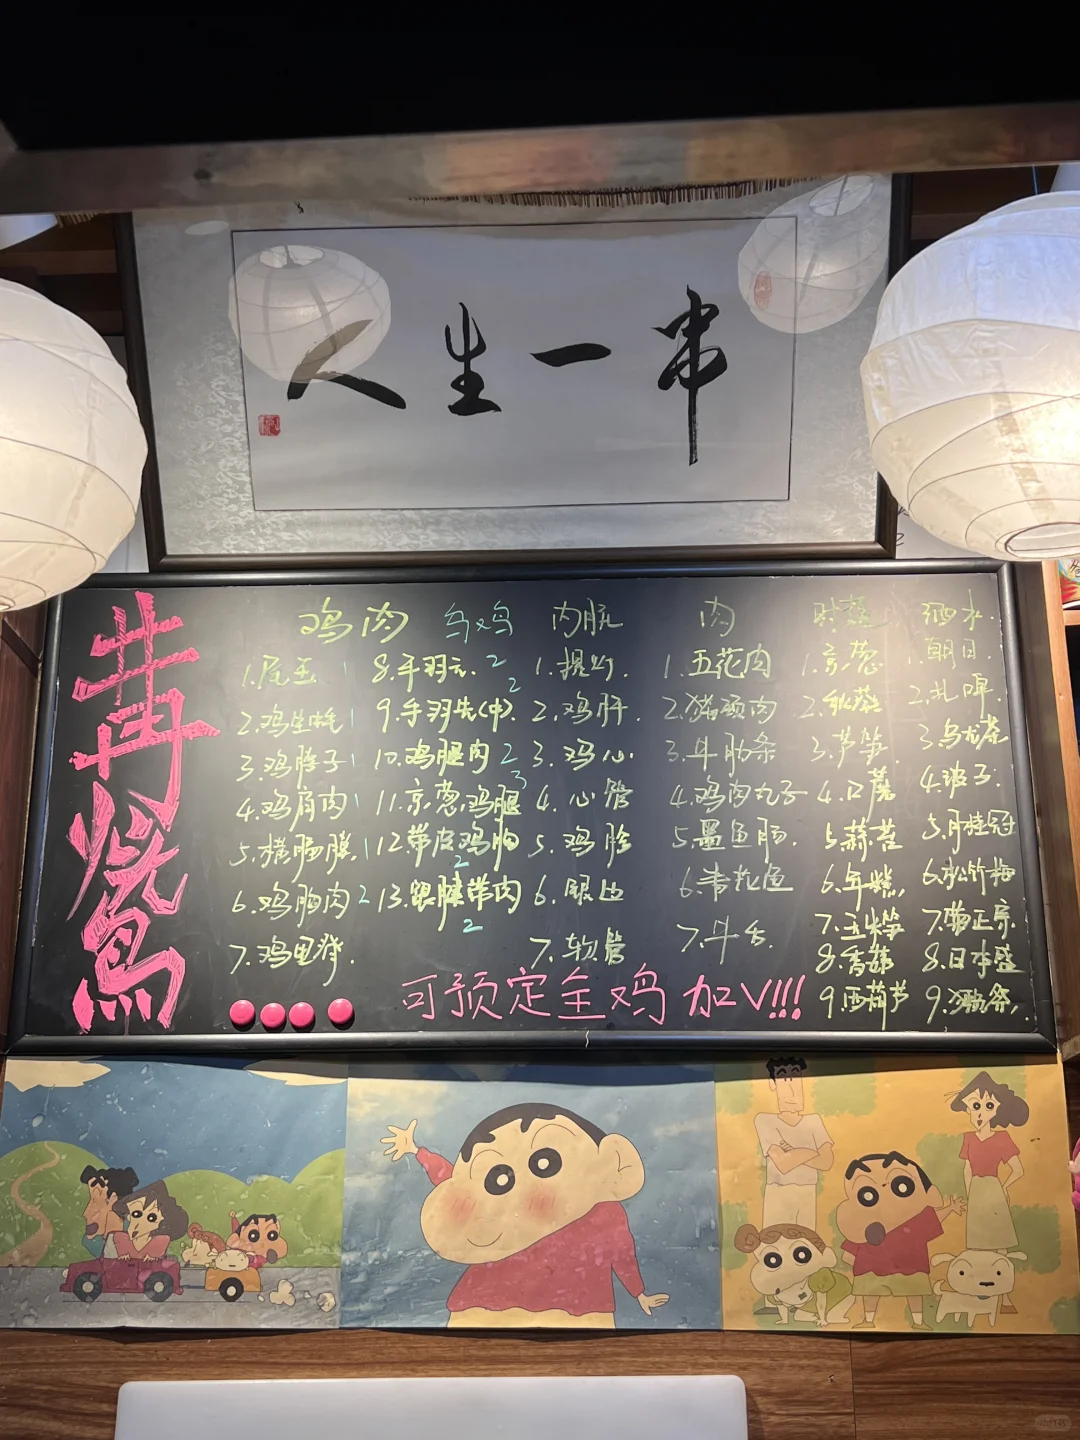 人生一串
烧鳥
鸡肉
1.尾玉 1
2.鸡生蚝 1
3.鸡脖子 1
4.鸡肩肉 1
5.横膈膜 1
6.鸡胸肉 2
7.鸡里脊.
乌鸡
8.手羽元. 2
9.手羽先(中). 2
10.鸡腿肉 2
11.京葱鸡腿 3
12.带皮鸡胸 2
13.银腱带肉 2
内脏
1.提灯.
2.鸡肝.
3.鸡心.
4.心管
5.鸡胗
6.银边
7.软管
肉
1.五花肉
2.猪颈肉
3.牛肋条
4.鸡肉丸子
5.墨鱼肠.
6.多春鱼
7.牛舌.
时蔬
1.京葱
2.秋葵
3.芦笋.
4.口蘑
5.蒜苔
6.年糕.
7.玉米笋
8.香菇
9.西葫芦
酒水.
1.朝日.
2.扎啤.
3.乌龙茶
4.波子.
5.月桂冠
6.松竹梅
7.菊正宗
8.日本盛
9.獭祭.
可预定全鸡 加V!!!